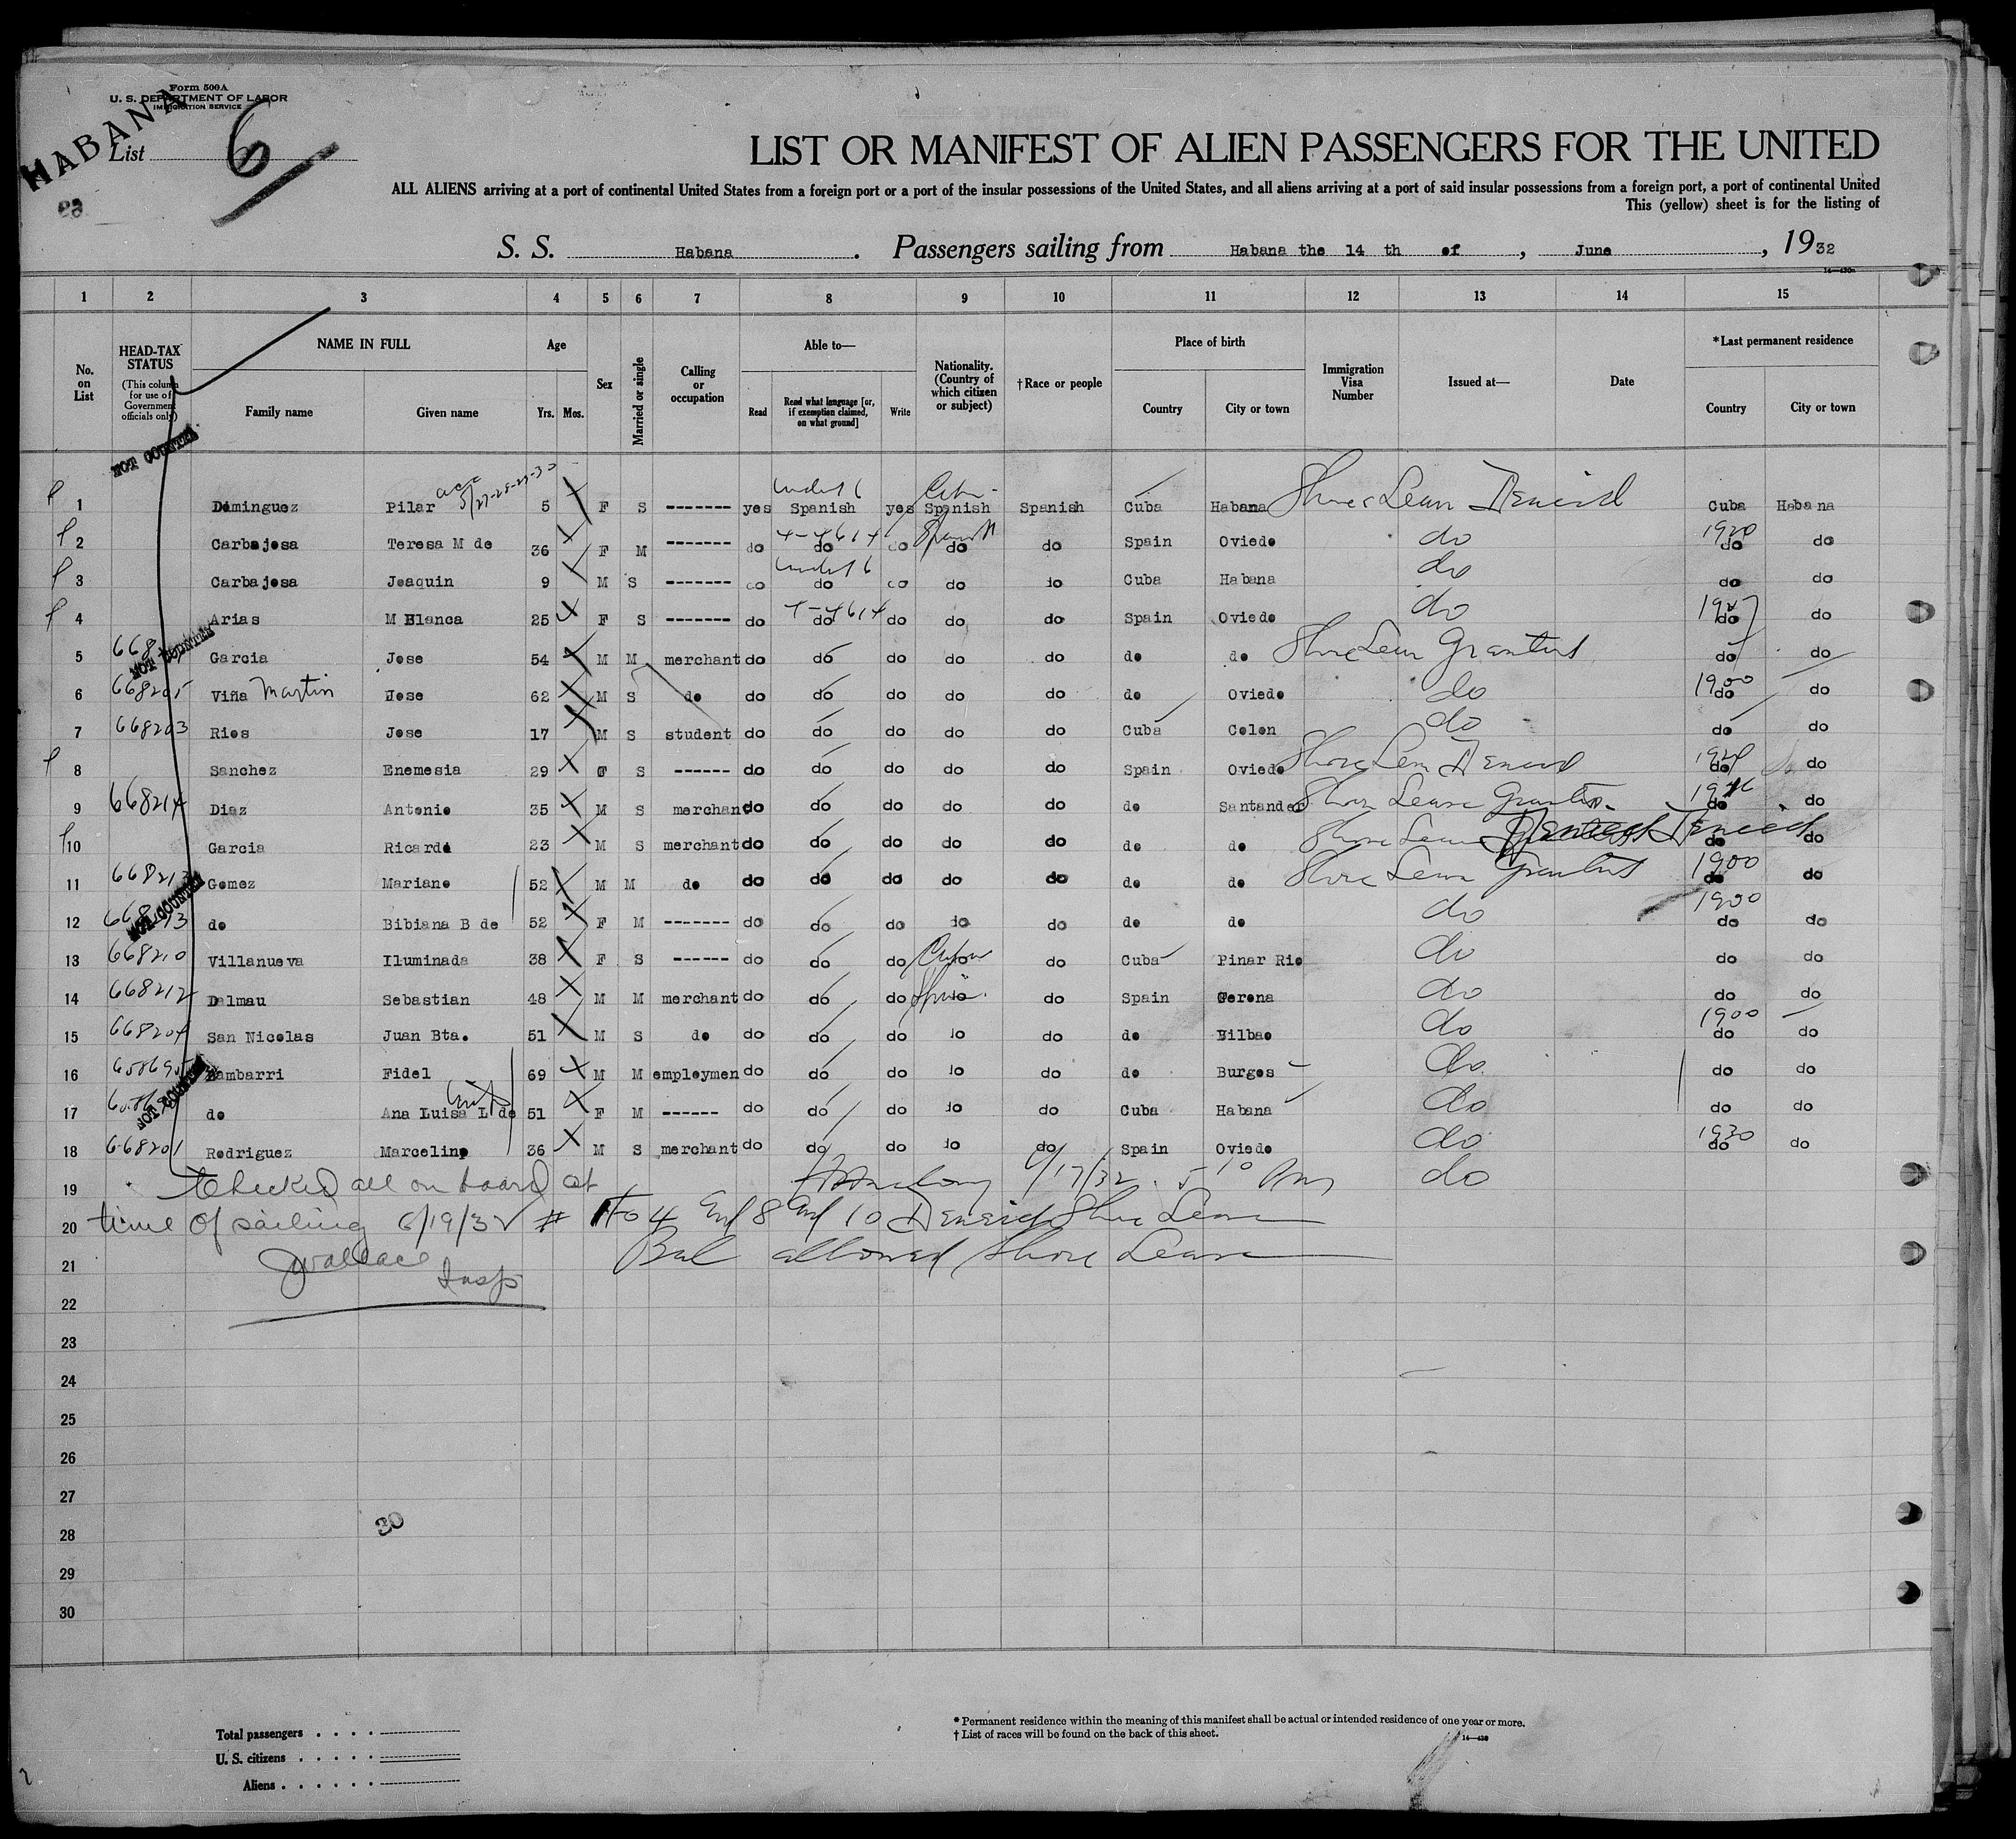 Form 500A
U. S. DEPARTMENT OF LABOR
IMMIGRATION SERVICE
HABANA
List 6
LIST OR MANIFEST OF ALIEN PASSENGERS FOR THE UNITED
ALL ALIENS arriving at a port of continental United States from a foreign port or a port of the insular possessions of the United States, and all aliens arriving at a port of said insular possessions from a foreign port, a port of continental United
This (yellow) sheet is for the listing of
S. S. Habana . Passengers sailing from Habana the 14 th of , June , 1932
1 2 3 4 5 6 7 8 9 10 11 12 13 14 15
No. on List
HEAD-TAX STATUS (This column for use of Government officials only)
NAME IN FULL
Family name Given name
Age
Yrs. Mos.
Sex
Married or single
Calling or occupation
Able to—
Read Read what language [or, if exemption claimed, on what ground] Write
Nationality. (Country of which citizen or subject)
†Race or people
Place of birth
Country City or town
Immigration Visa Number
Issued at—
Date
*Last permanent residence
Country City or town
NOT COUNTED
1 Dominguez Pilar 5/27-28-29-30 5 F S ------- yes under 6 Spanish yes Cuba Spanish Spanish Cuba Habana Shore Leave Denied Cuba Habana
2 Carbajosa Teresa M de 36 F M ------- do do do Spanish do do Spain Oviedo do 1920 do do
3 Carbajosa Joaquin 9 M S ------- do under 6 do do do do Cuba Habana do do do
4 Arias M Blanca 25 F S ------- do do do do do Spain Oviedo do do do
5 NOT COUNTED Garcia Jose 54 M M merchant do do do do do do do Shore Leave Granted do do
6 668205 Viña Martin Jose 62 M S do do do do do do do Oviedo do 1900 do do
7 668203 Rios Jose 17 M S student do do do do do Cuba Colon do do do
8 Sanchez Enemesia 29 F S ------ do do do do do Spain Oviedo Shore Leave Denied do do
9 668214 Diaz Antonio 35 M S merchant do do do do do do Santander Shore Leave Granted do do
10 Garcia Ricardo 23 M S merchant do do do do do do do Shore Leave Denied do do
11 668213 Gomez Mariano 52 M M do do do do do do do do Shore Leave Granted 1900 do do
12 NOT COUNTED do Bibiana B de 52 F M ------- do do do do do do do do 1900 do do
13 668210 Villanueva Iluminada 38 F S ------ do do do Cuban do Cuba Pinar Rio do do do
14 668212 Dalmau Sebastian 48 M M merchant do do do do do Spain Gerona do do do
15 668204 San Nicolas Juan Bta. 51 M S do do do do do do do Bilbao do 1900 do do
16 Fidel 69 M M employmen do do do do do do Burgos do do do
17 NOT COUNTED do Ana Luisa L de 51 F M ------ do do do do do Cuba Habana do do do
18 668201 Rodriguez Marcelino 36 M S merchant do do do do do Spain Oviedo do 1930 do do
19 Checked all on board at 6/17/32 5 10 Pm do
20 time of sailing 6/19/32 # 1 to 4 and 8 and 10 Denied Shore Leave
21 JWallace Insp Bal allowed Shore Leave
22
23
24
25
26
27
28
30
29
30
Total passengers . . . .
U. S. citizens . . . . .
Aliens . . . . . .
* Permanent residence within the meaning of this manifest shall be actual or intended residence of one year or more.
† List of races will be found on the back of this sheet.